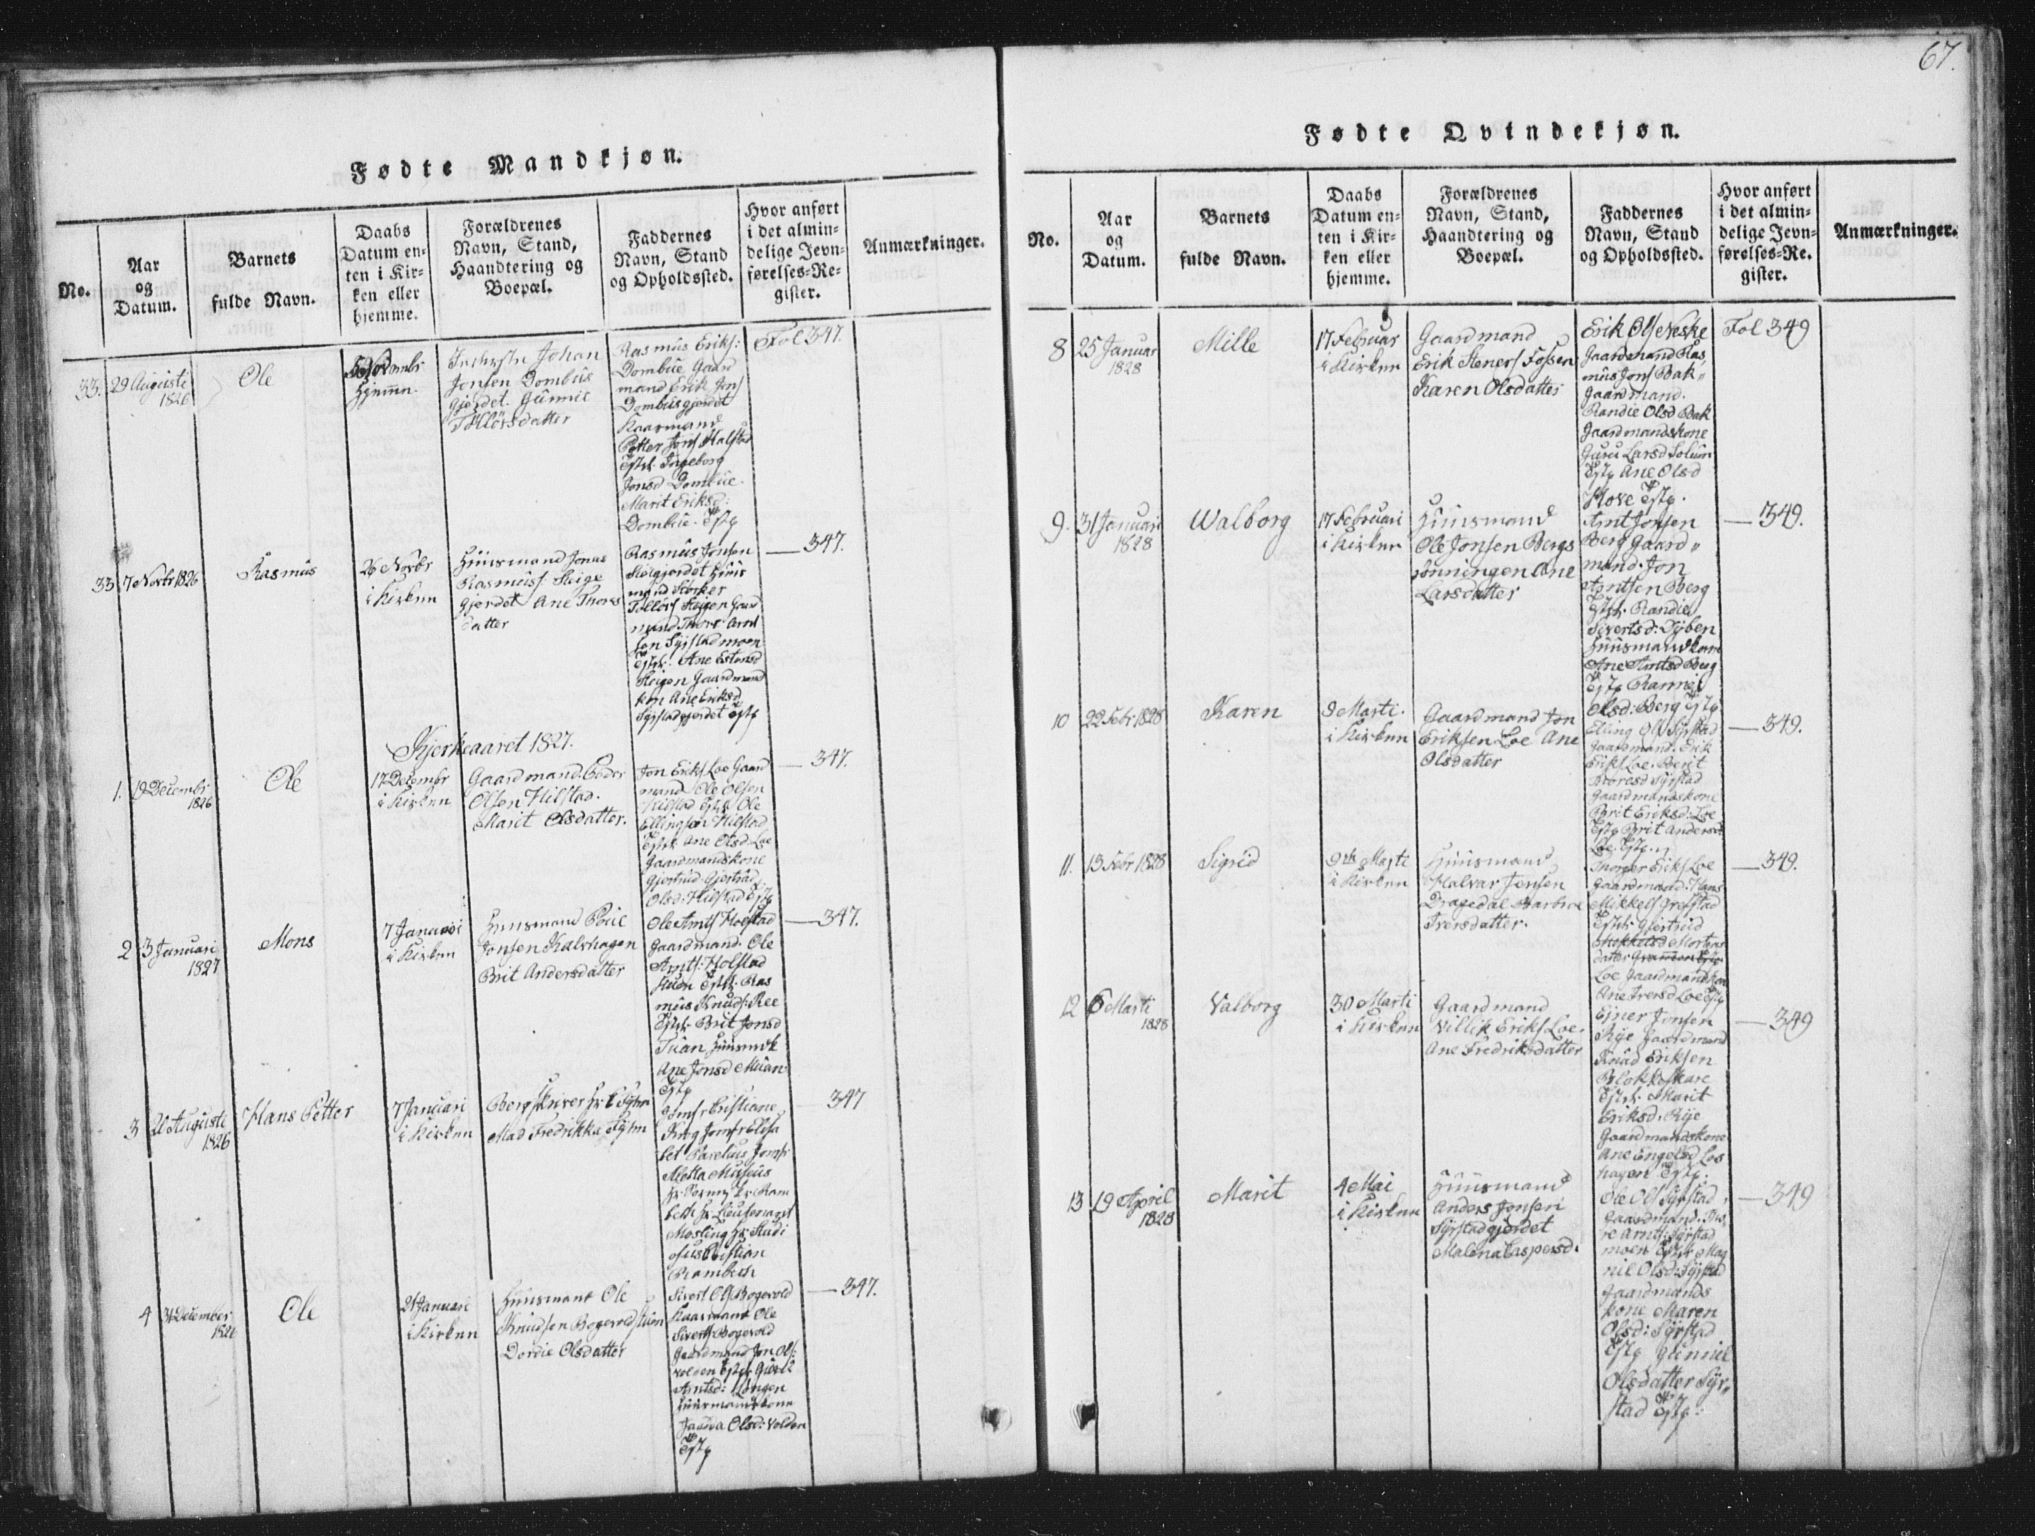 67.
Fødte Mandkjøn.
No.
Aar
og
Datum.
Barnets
fulde Navn.
Daabs
Datum en-
ten i Kir-
ken eller
hjemme.
Forældrenes
Navn, Stand,
Haandtering og
Boepæl.
Faddernes
Navn, Stand
og Opholdssted.
Hvor anført
i det almin-
delige Jevn-
førelses-Re-
gister.
Anmærkninger.
33. 29 Augusti
1826
Ole
Hjemm
Johan
Jonsen Dombus
gjerdet. Gunnil
datter
Rasmus Eriks:
Dombue Gaard
mand Erik Jons
Dombusgjerdet
Petter Jons Halstad
Ingeborg
Jonsd Dombue.
Marit Eriksd:
Dombue.
Fol 347.
33 7 Novbr 1826
Rasmus
26 Novbr
i Kirken
Huusmand Jonas
Rasmuss Steige
gjerdet Ane Thores
datter
Rasmus Jonsen
Steigjerdet Huus
mand
Steigen Gaard
mand Thore Arnt
sen Syrstadmoen
Ane Estensd
Steigen Gaardmand
kon Ane Eriksd
Syrstadgjerdet
347.
Kjerkeaaret 1827.
1. 19 Decembr
1826
Ole
17 Decembr
i Kirken
Gaardmand. Peder
Olsen Hilstad.
Marit Olsdatter.
Jon Eriks Loe Gaard
mand Ole Olsen
Hilstad Ole
Ellingsen Hilstad
Ane Olsd Loe
Gaardmandskone
Gjertrud
Olsd: Hilstad
347.
2 3 Januari
1827
Mons
7 Januari
i Kirken
Huusmand Poul
Jonsen Kalvhagen
Brit Andersdatter
Ole Arnts Holstad
Gaardmand. Ole
Arnts: Holstad
Ras
mus Knuds: Ree
Brit Jonsd
Tuan
Ane Jonsd Muan
347.
3 21 Augusti
1826
Hans Petter
7 Januari
i Kirken
Bergskriver Hr
Mad Fredrikka
Jomfr Kristiane
Krog Jomfr Elisa
bet Parelius Jomfr
Aletta
beth Hr Lieutenant
Mosling Hr Studi
osus Kristian
Rambech
347
4 31 December
1826
Ole
21 Januari
i Kirken
Huusmand Ole
Knudsen Bogevold
Dordie Olsdatter
Sivert Ols Bogevold
Ole
Siverts Bogevold
Gaardmand Jon Ols:
Arntsd: Langen
Huusmandskone
Olsd: Volden
347.
Fødte Qvindekjøn.
No.
Aar
og
Datum.
Barnets
fulde Navn.
Daabs
Datum en-
ten i Kir-
ken eller
hjemme.
Forældrenes
Navn, Stand,
Haandtering og
Boepæl.
Faddernes
Navn, Stand
og Opholdssted.
Hvor anført
i det almin-
delige Jevn-
førelses-Re-
gister.
Anmærkninger.
8 25 Januar
1828
Mille
17 Februar
i Kirken
Gaardmand
Erik Steners Fossen
Karen Olsdatter
Erik Ols Reske
Gaardmand Ras,
mus Jons Bak
gaardmand.
Randie Olsd Bak
Gaardmandskone
Guru Larsd Solum
Ane Olsd
Fol 349
9. 31 Januari
1828
Walborg
17 Februari
i Kirken
Huusmand
Ole Jonsen Bergs
rønningen Ane
Larsdatter
Arnt Jonsen
Berg Gaard
mand. Jon
Arntsen Berg
Randie
Sivertsd:
Huusmandkone
Ane Arntsd Berg
Olsd: Berg
349.
10 22 Febr. 1828
Karen
9 Marti.
i Kirken
Gaardmand Jon
Eriksen Loe Ane
Olsdatter
Elling Ols Syrstad
Gaardmand. Erik
Eriks Loe. Berit
Syrstad
Gaardmandskone
Brit Eriksd: Loe
Brit Andersd
Loe
349.
11. 13 Febr 1828
Sigrid
9de Marti
i Kirken
Huusmand
Halvar Jensen
Dragedal
Iversdatter.
Eriks Loe
Gaardmand. Hans
Mikkels
Gjertrud
Mortens
datter
Loe Gaardmandskon
Ane Iversd Loe
349.
12 6 Marti
1828
Valborg
30 Marti
i Kirken
Gaardmand
Villik Eriks Loe.
Ane Fredriksdatter
Ejner Jonsen
Rye Gaardmand
Knud Eriksen
Blokkskare
Marit
Eriksd. Rye
Gaardmandskone
Ane Engelsd Loe
hagen
349
13 19 April
1828
Marit
4 Mai
i Kirken
Huusmand
Anders Jonsen
Syrstadgjerdet
Malena Caspersd.
Ole Ols Syrstad
Gaardmand. Tho
re Arnts: Syrstad
moen Mag
nil Olsd: Syrstad
Gaardmands
kone Maren
Olsd: Syrstad
Gunnil
Olsdatter Syr
stad
349